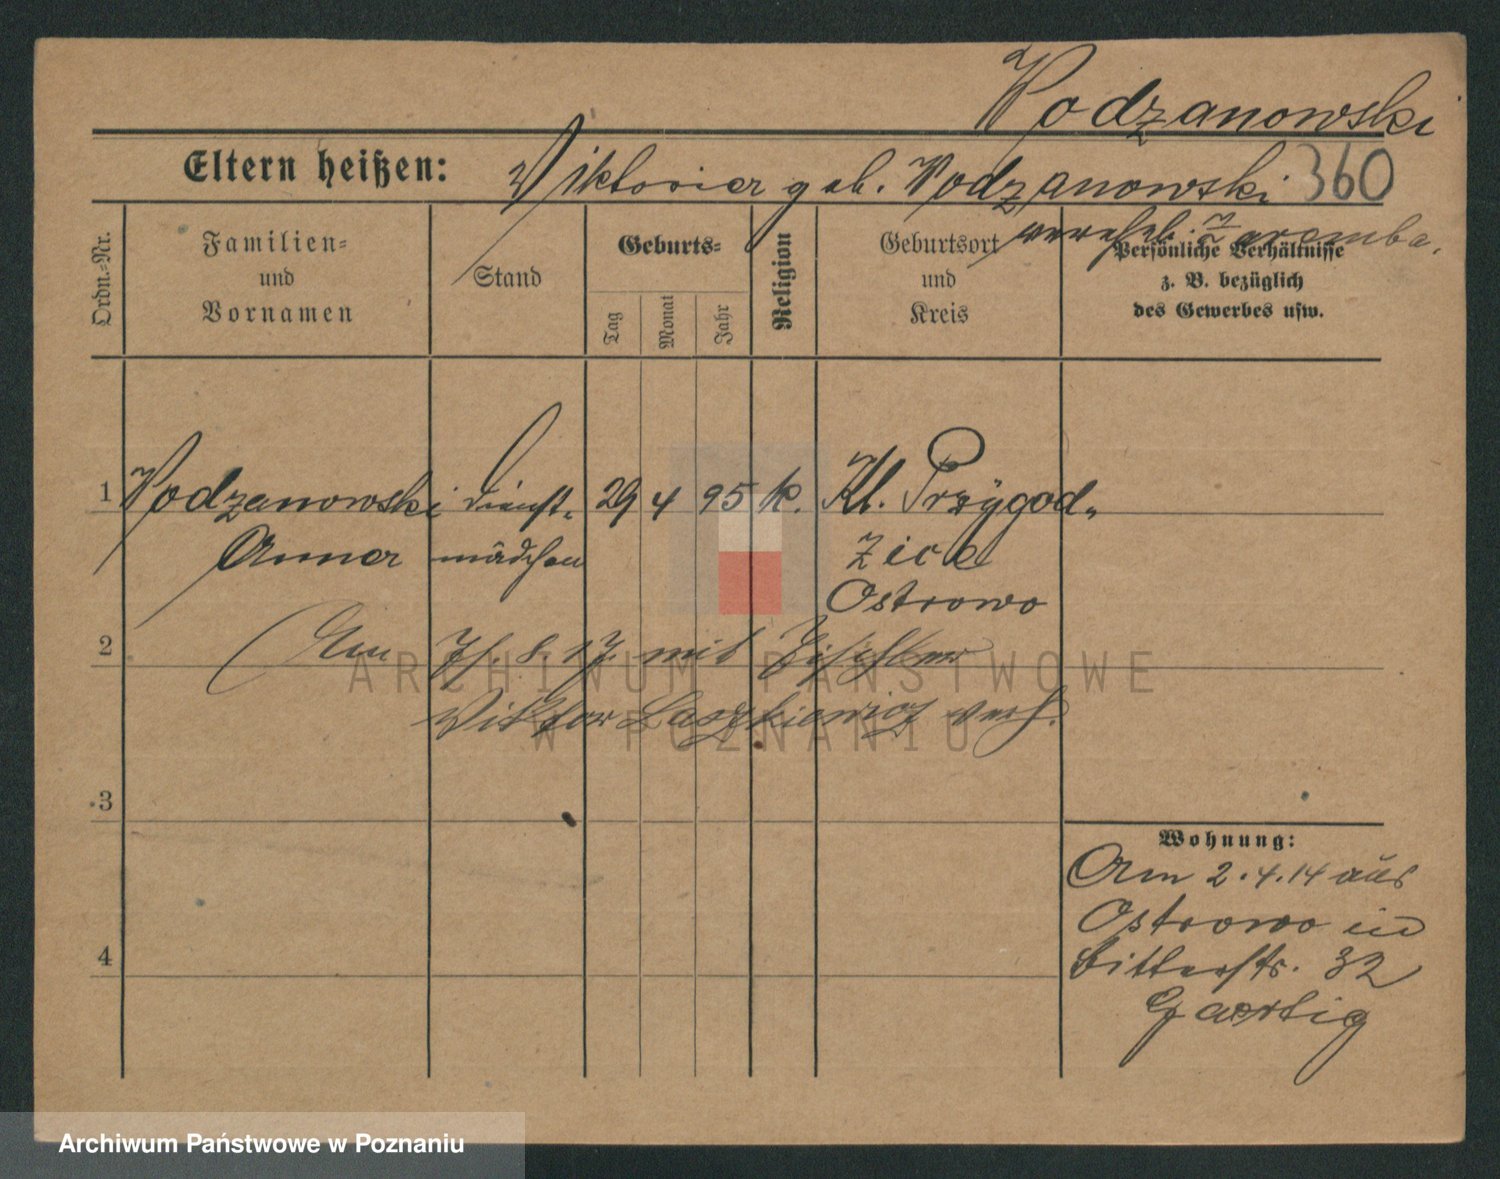 Wodzanowski
Eltern heißen: Viktoria geb. Wodzanowski 360
vereh. Zaremba.
Ordn.-Nr.
Familien-
und
Vornamen
Stand
Geburts-
Tag
Monat
Jahr
Religion
Geburtsort
und
Kreis
Persönliche Verhältnisse
z. B. bezüglich
des Gewerbes usw.
1 Wodzanowski Dienst- 29 4 95 k. Kl. Przygod-
Anna mädchen zice
Ostrowo
2 Am 7/. 8. 17. mit Tischler
Viktor Laszkiewicz verh.
3
Wohnung:
Am 2.4.14 aus
Ostrowo in
Ritterstr. 32
Gaertig
4
ARCHIWUM PAŃSTWOWE
W POZNANIU
Archiwum Państwowe w Poznaniu